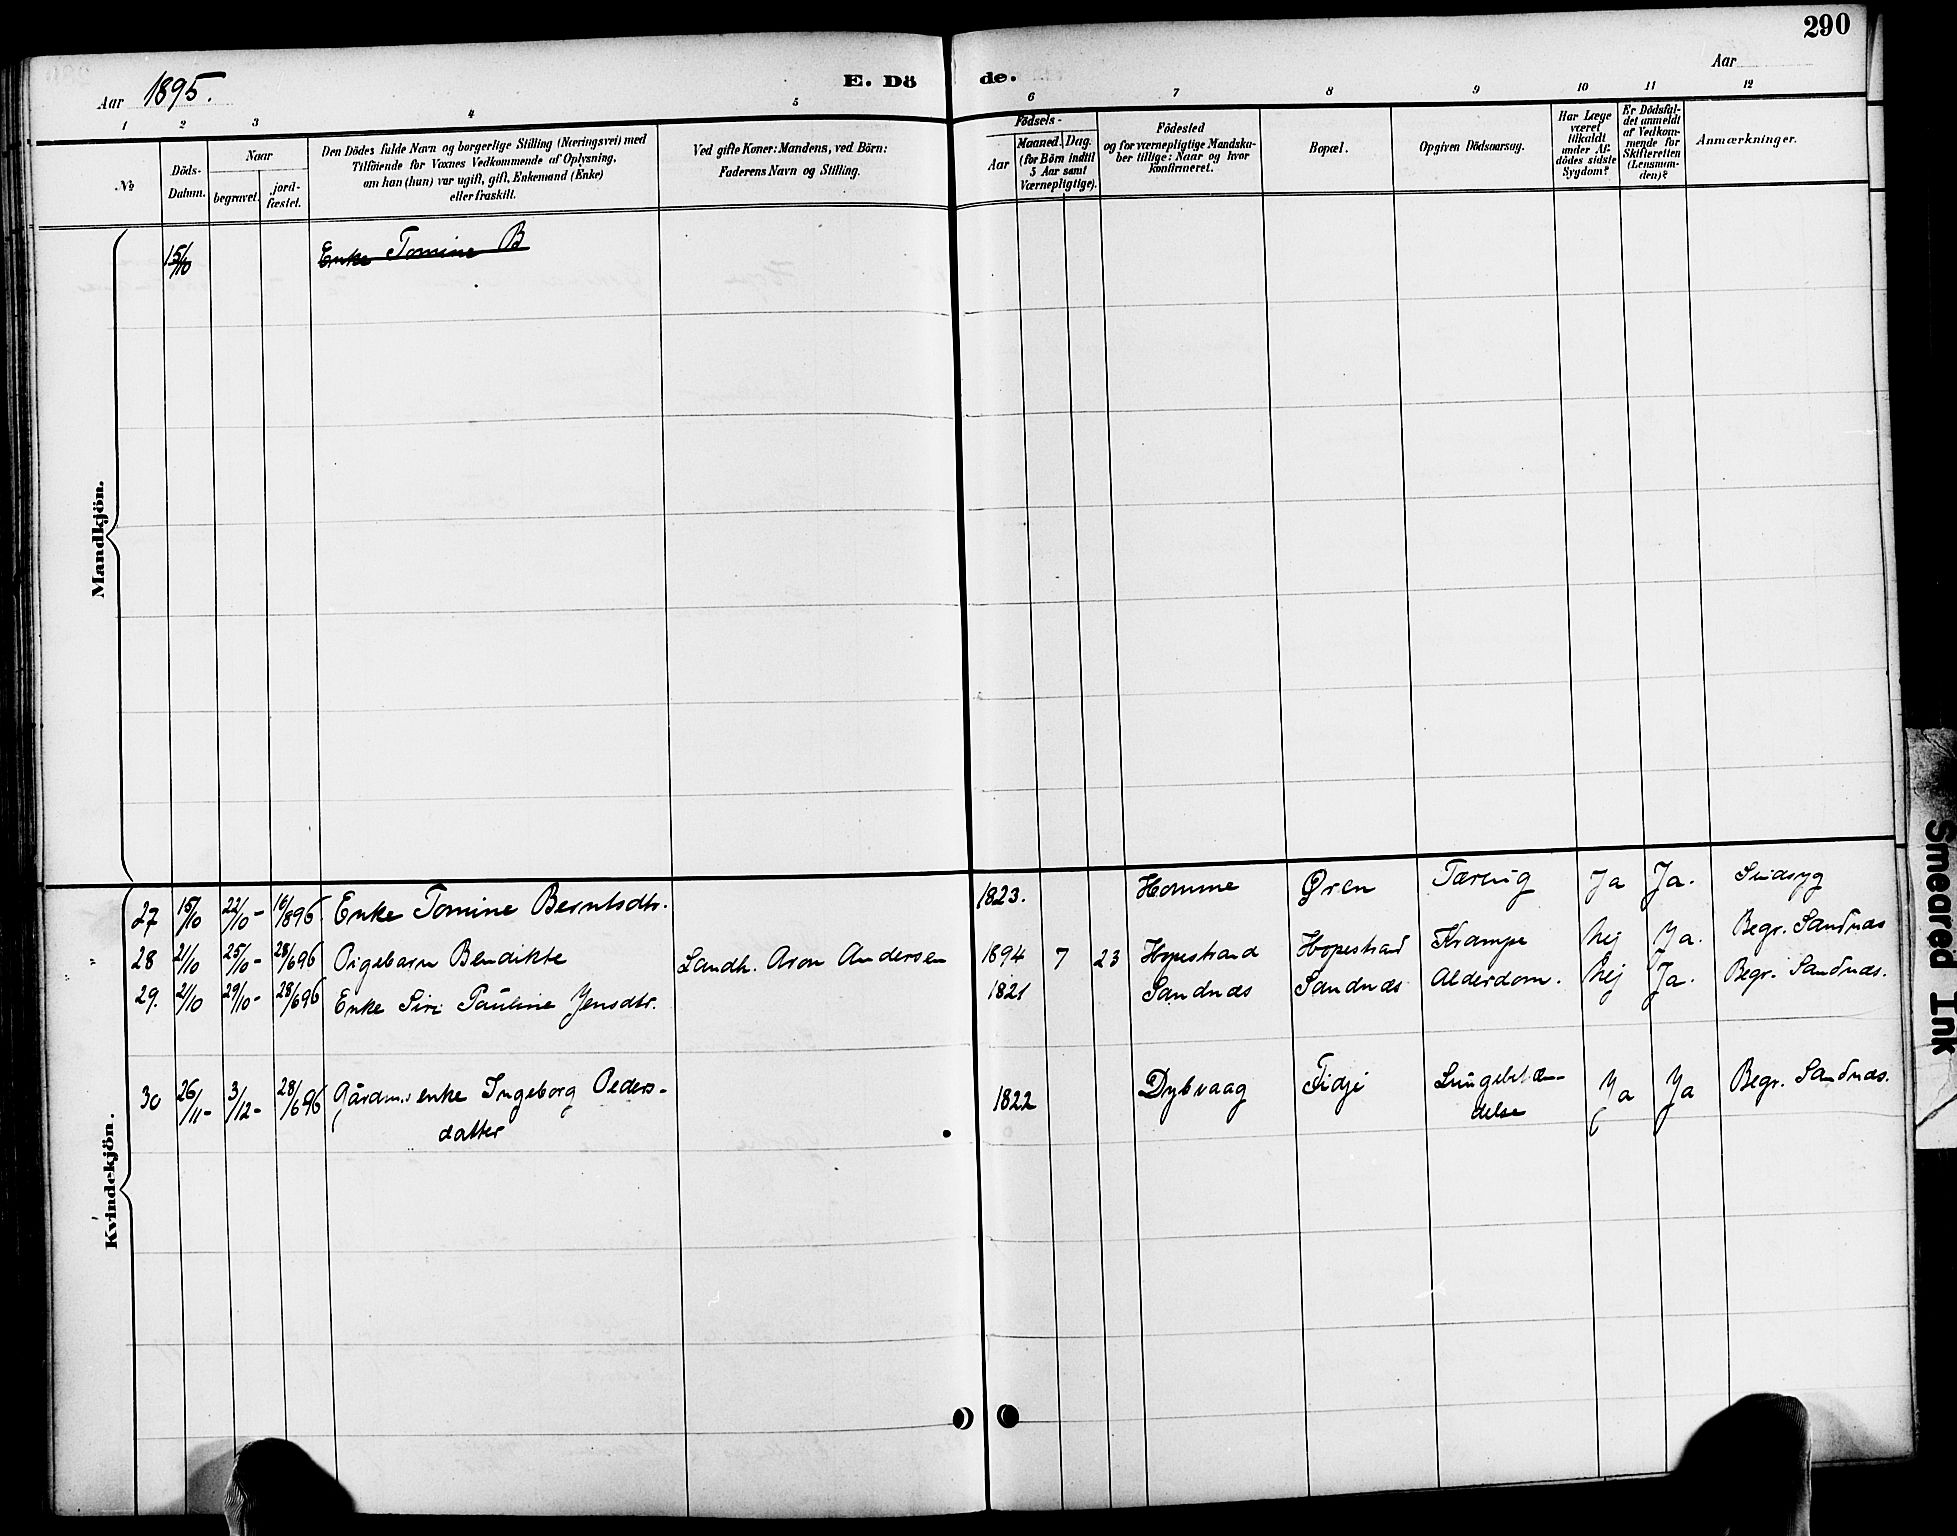 290
Aar 1895.
E. Dö de.
Aar
1 2 3 4 5 6 7 8 9 10 11 12
No
Döds-
Datum.
Naar
begravet.
jord-
fæstet.
Den Dödes fulde Navn og borgerlige Stilling (Næringsvei) med
Tilföiende for Voxnes Vedkommende af Oplysning,
om han (hun) var ugift, gift, Enkemand (Enke)
eller fraskilt.
Ved gifte Koner: Mandens, ved Börn:
Faderens Navn og Stilling.
Födsels-
Aar
Maaned. Dag.
(for Börn indtil
5 Aar samt
Værnepligtige).
Födested
og for værnepligtige Mandska-
ber tillige: Naar og hvor
konfirmeret.
Bopæl.
Opgiven Dödsaarsag.
Har Læge
været
tilkaldt
under Af-
dödes sidste
Sygdom?
Er Dödsfal-
det anmeldt
af Vedkom-
mende for
Skifteretten
(Lensman-
den)?
Anmærkninger.
Mandkjön.
15/10 Enke Tomine B
Kvindekjön.
27 15/10 22/10- 16/896 Enke Tomine Berntsdtr. 1823. Homme Øren Tæring Ja Ja. Sindsyg
28 21/10 25/10- 28/696 Pigebarn Bendikte Landh. Aron Andersen 1894 7 23 Hopestrand Hopestrand Krampe Nej Ja. Begr. Sandnæs
29. 21/10 29/10- 28/696 Enke Siri Pauline Jensdtr. 1821 Sandnæs Sandnæs Alderdom. Nej Ja. Begr. Sandnæs.
30 26/11- 3/12- 28/696 Gårdm.s enke Ingeborg Peders- 1822 Dybvaag Fidje Lungebetæn- Ja Ja Begr. Sandnæs.
datter delse
Smeared Ink